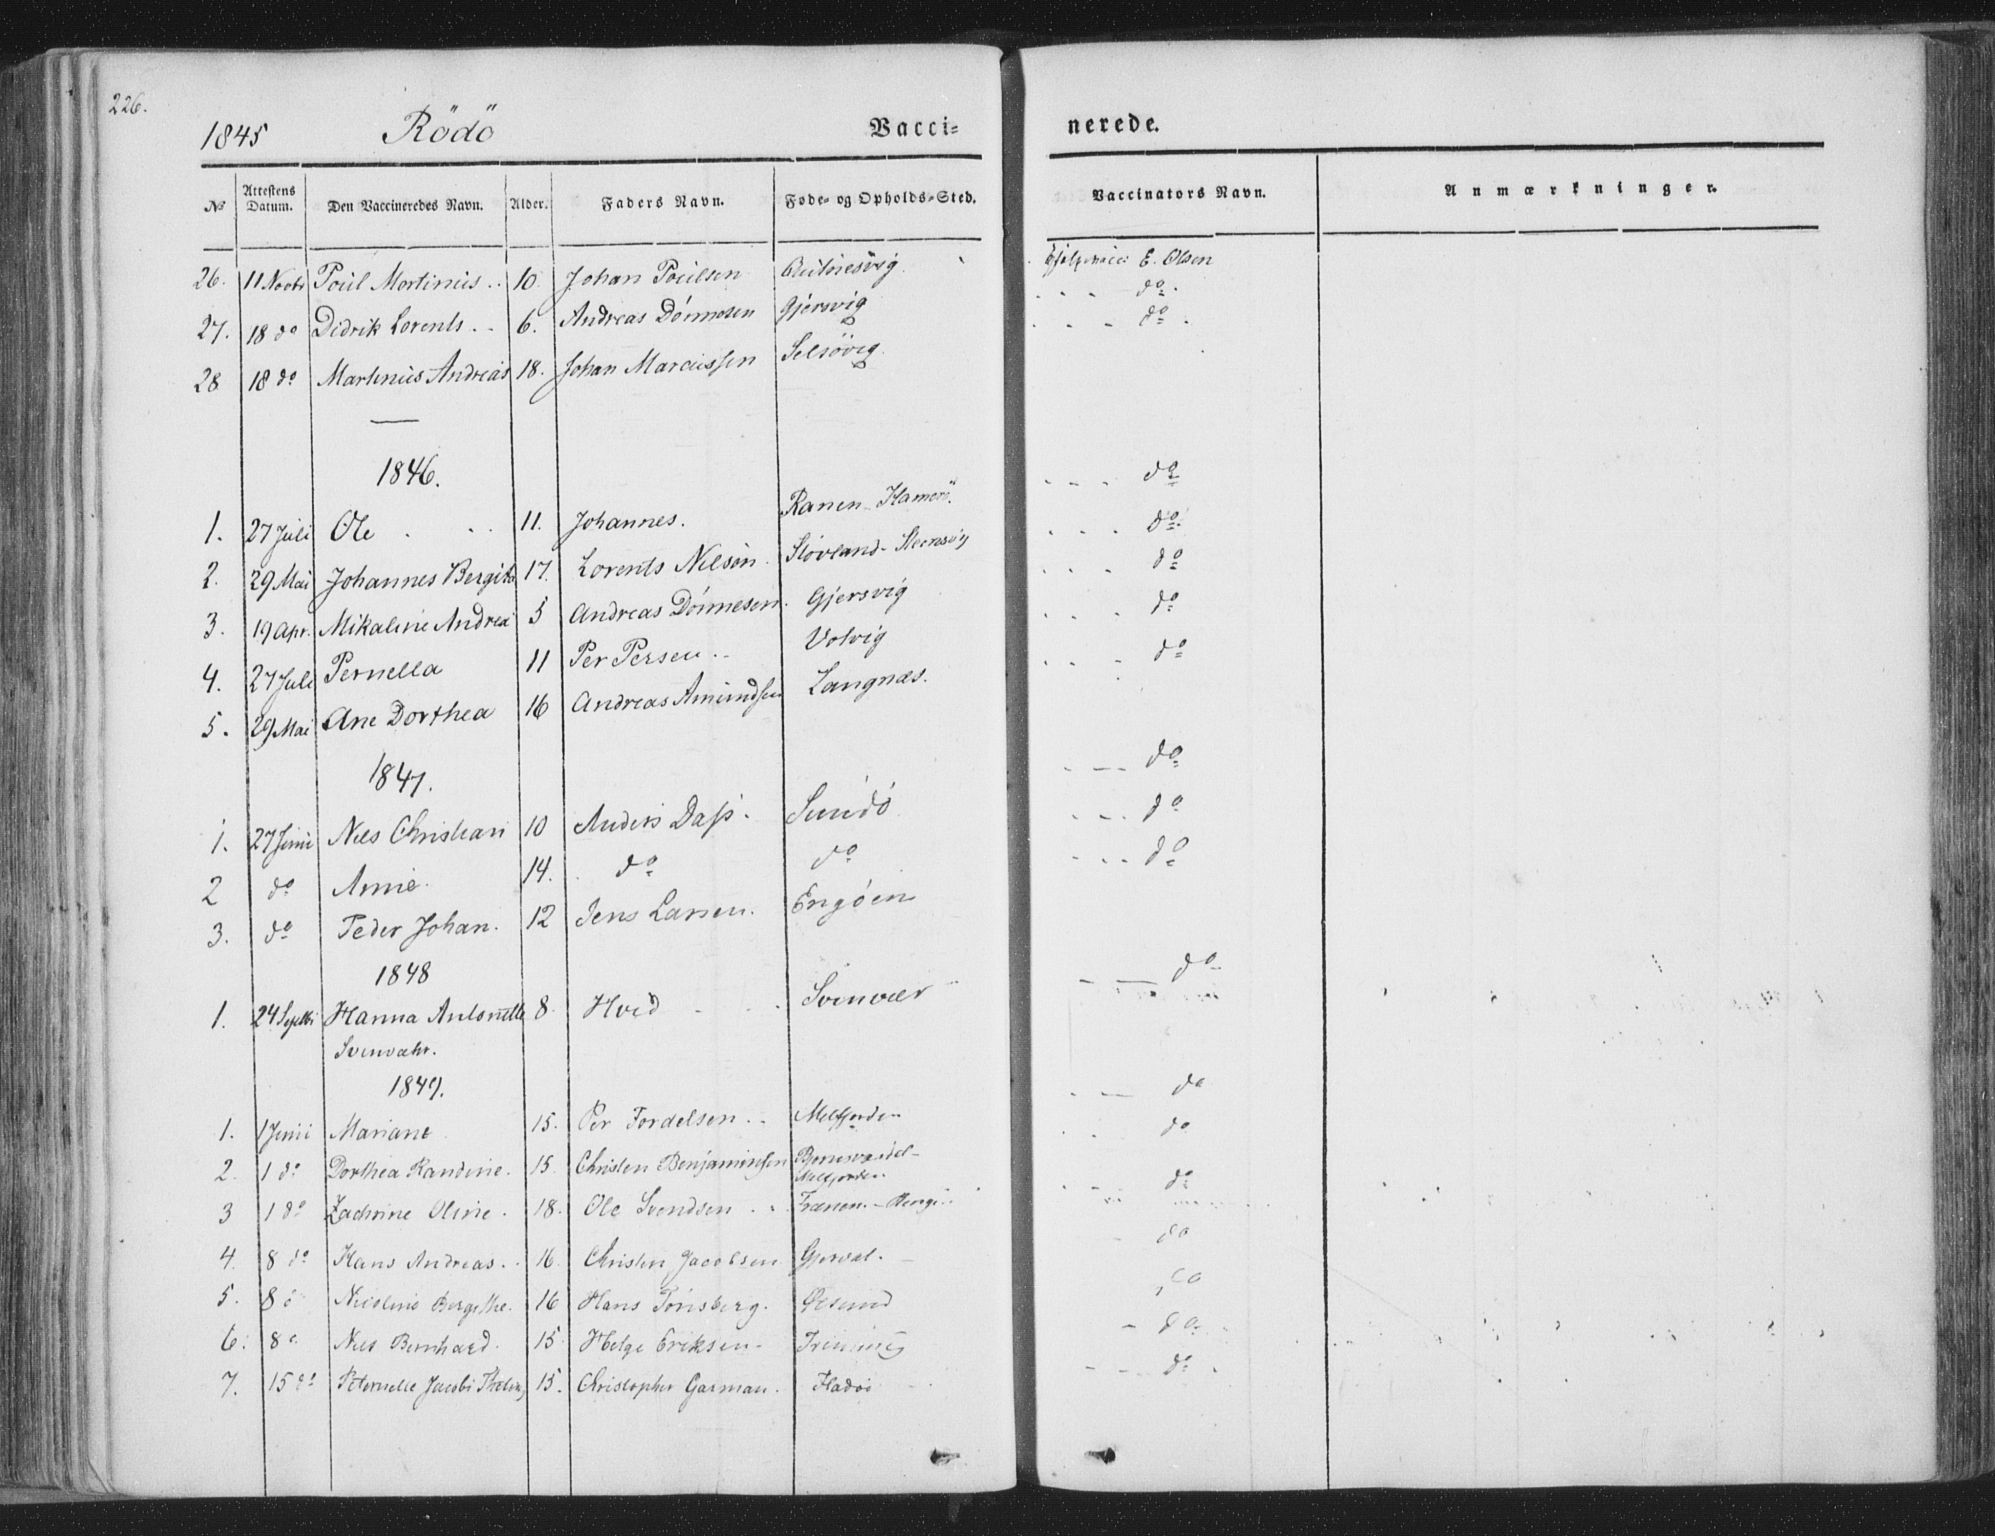 226.
1845 Rödö Vacci= nerede.
No Attestens Datum. Den Vaccineredes Navn. Alder. Faders Navn. Føde- og Opholds-Sted. Vaccinators Navn. Anmærkninger.
26. 11 Novbr Poul Martinus .. 10. Johan Poulsen E. Olsen
27. 18 do Didrik Lorents .. 6. Andreas Dönnesen Gjersvig do
28 18 do Martinus Andreas 18. Johan Marcussen Selsövig do
1846.
1. 27 Juli Ole 11. Johannes. Ranen - Hamerö. do
2. 29 Mai Johannes Bergith 17. Lorents Nilsen Stovland- do
3. 19 Apr. Mikaline Andrea 5 Andreas Dönnesen. Gjersvig do
4. 27 Juli Pernella 11 Per Persen .. Volvig do
5. 29 Mai Ane Dorthea 16 Andreas Amundsen Langnæs. do
1847.
1. 27 Juni Niels Christian 10 Anders Dass. Sundö do
2 do Anne. 14. do do do
3. do Peder Johan. 12 Jens Larsen. Engöen do
1848
1. 24 Septbr Hanna Antonette 8. Hvid Svenvær do
Svenvahr.
1849.
1. 1 Junii Mariane 15. Per Fordelsen .. Melfjorden do
2. 1 do Dorthea Randine. 15. Christen Benjaminsen do
Melfjorden
3 1 do Zachrine Oline. 18. Ole Svendsen .. do
4. 8 do Hans Andreas.. 16. Christen Jacobsen Gjerval. do
5. 8 Nicoline Bergithe. 16 Hans Tönsberg. Öesund do
6. 8 Nils Bernhard. 15. Helge Eriksen. do
7. 15 do Peternelle Jacobi 15. Christopher Garman. Fladöi do